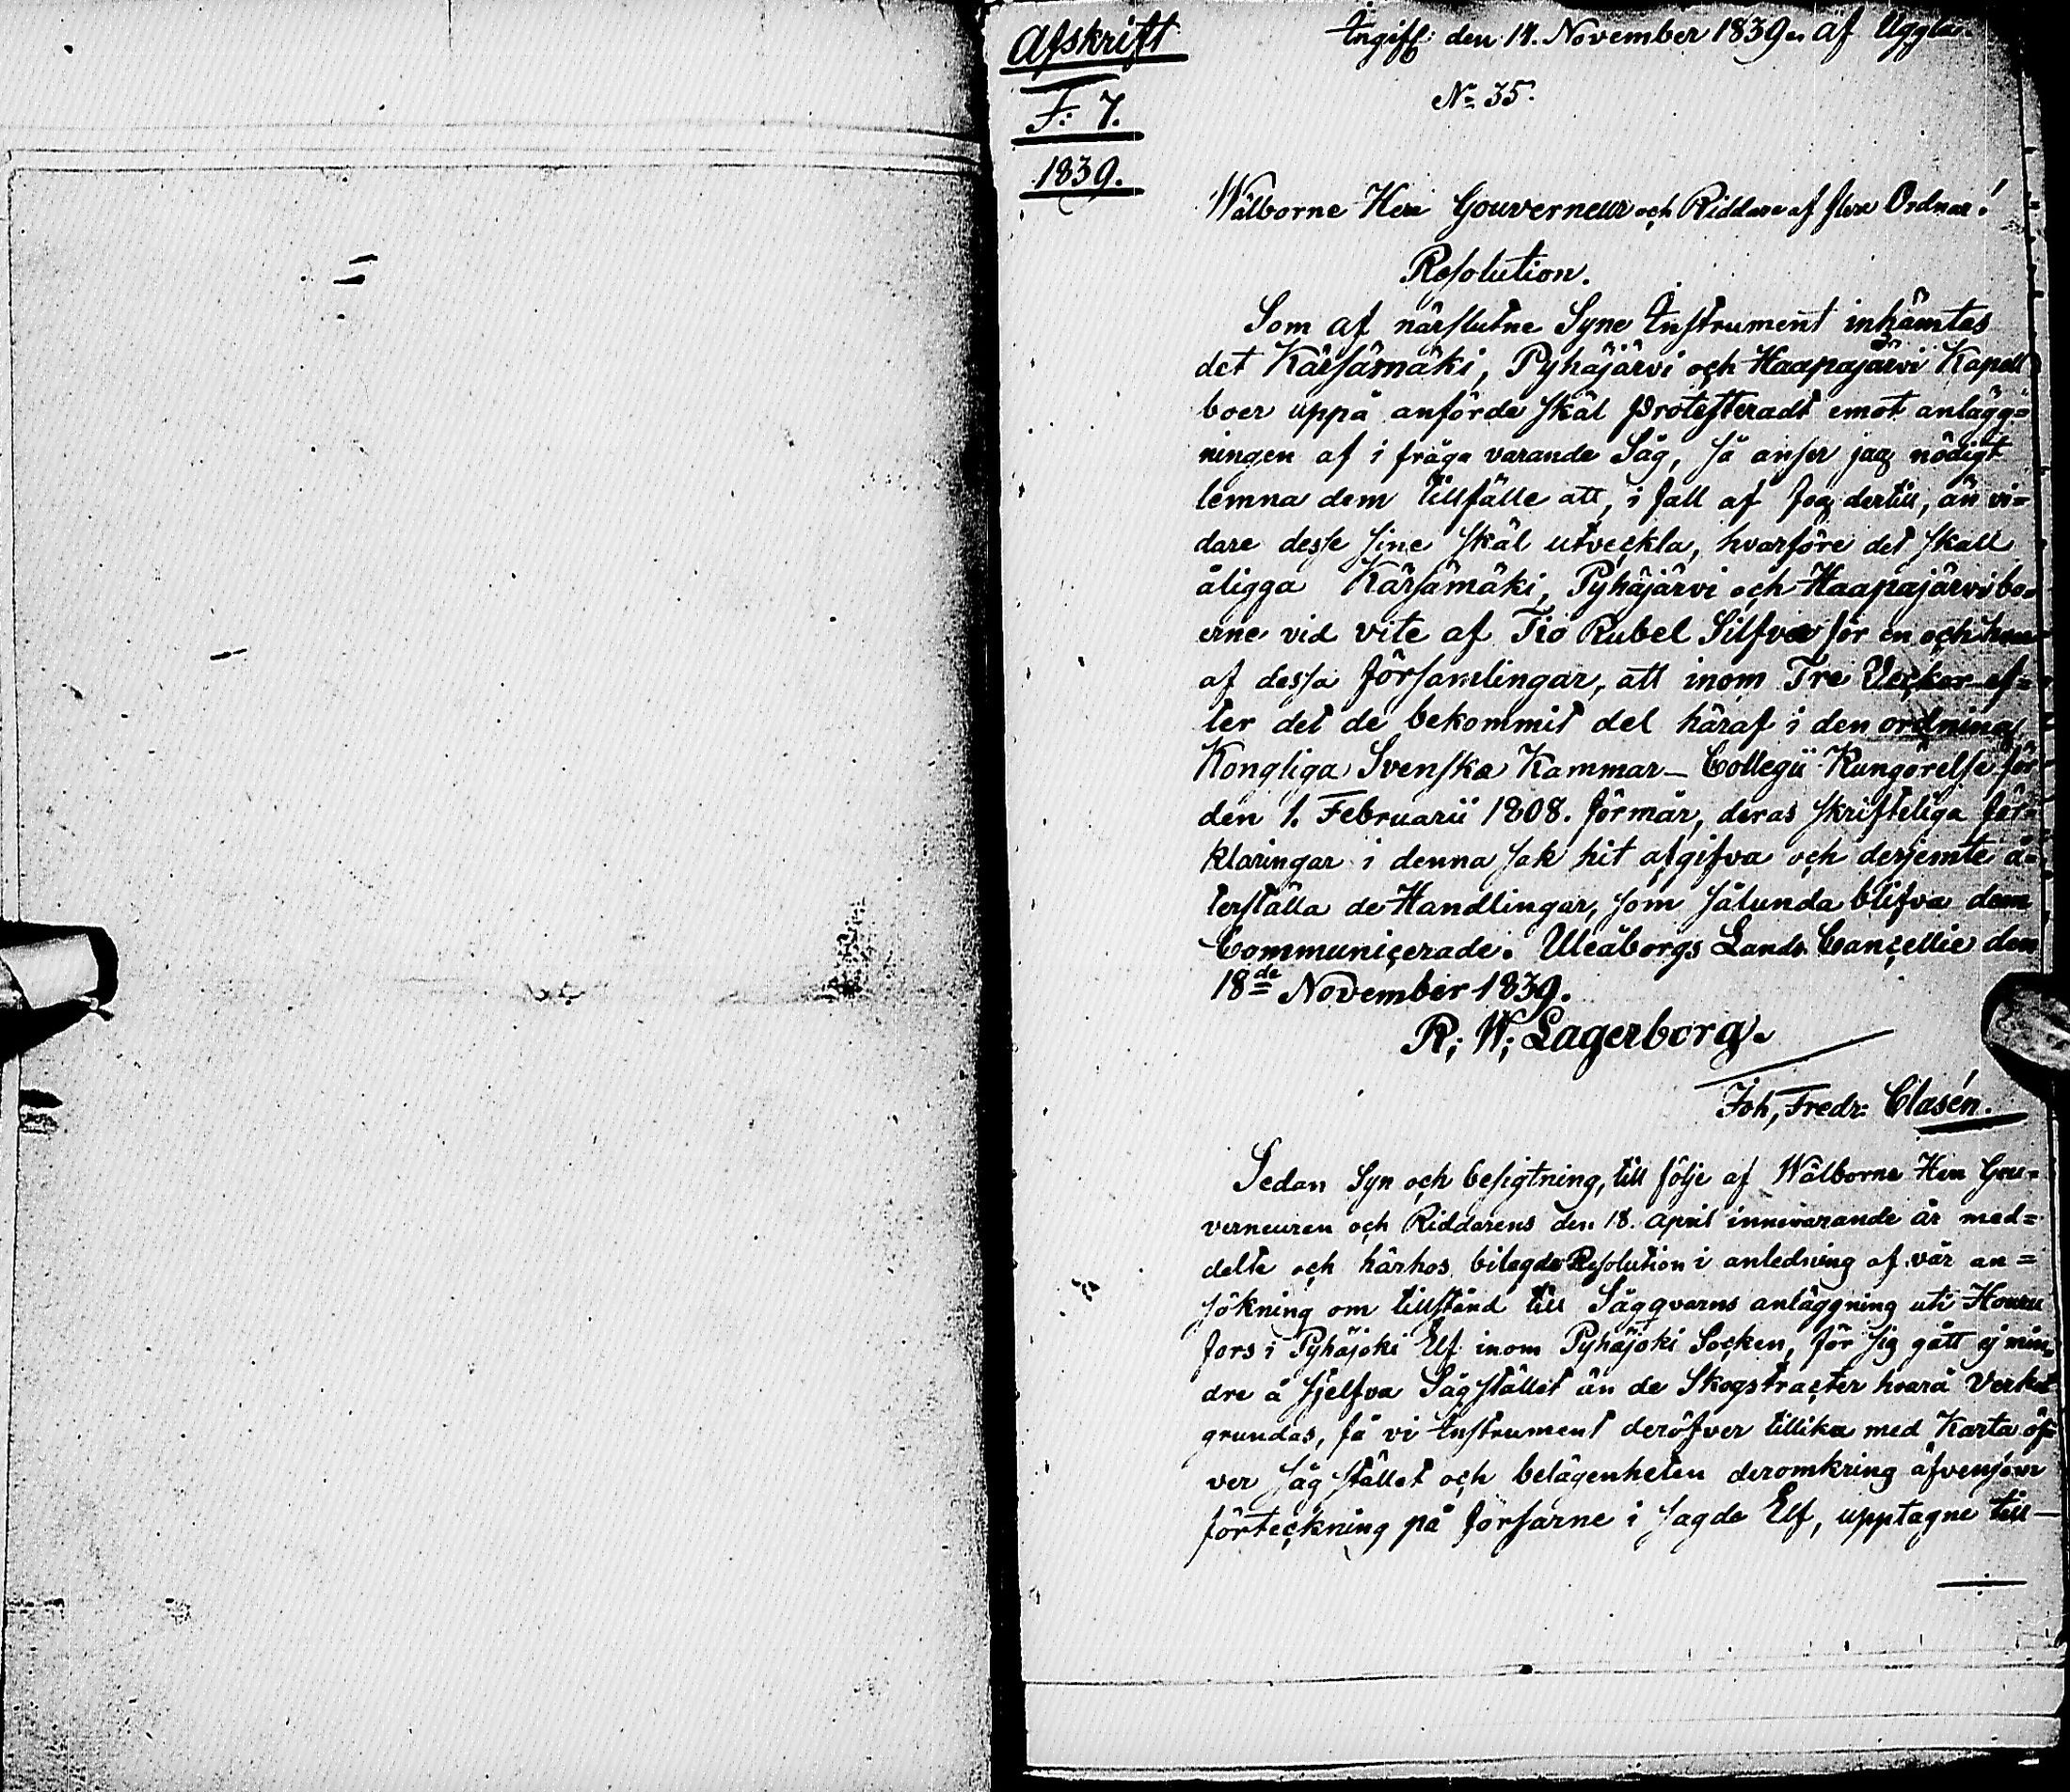 Afskrift
F: 7.
1839.
Ingiff: den 14. November 1839. af Uggla.
No 35.
Wälborne Herr Gouverneur och Riddare af flere Ordnar!
Resolution.
Som af närslutne Syne Instrument inhämtas
det Kärsämäki, Pyhäjärvi och Haapajärvi Kapell
boer uppå anförde skäl protesteradt emot anlägg=
ningen af i fråga varande Såg, så anser jag nödigt
lemna dem tillfälle att, i fall af fog dertill, än vi=
dare desse sine skäl utveckla, hvarföre det skall
åligga Kärsämäki, Pyhäjärvi och Haapajärvi bo=
erne vid vite af Tio Rubel Silfver för en och hvar
af dessa församlingar, att inom Tre Veckor ef=
ter det de bekommit del häraf i den ordning
Kongliga Svenska Kammar-Collegii Kungörelse för
den 1. Februarii 1808. förmår, deras skrifteliga för=
klaringar i denna sak hit afgifva och derjemte å=
terställa de Handlingar, som sålunda blifva dem
Communicerade. Uleåborgs Lands Cancellie den
18de November 1839.
R; W; Lagerborg.
Joh, Fredr: Clasén.
Sedan Syn och besigtning, till följe af Wälborne Herr Gou=
verneuren och Riddarens den 18. April innevarande år med=
delte och härhos bilagde Resolution i anledning af vår an=
sökning om tillstånd till Sågqvarns anläggning uti Houru
fors i Pyhäjoki Elf inom Pyhäjoki Socken, för sig gått ej min=
dre å sjelfva Sågstället än de Skogstracter hvarå Verket
grundas, få vi Instrument deröfver tillika med Karta öf=
ver Sågstället och belägenheten deromkring äfvensom
förteckning på forsarne i sagde Elf, upptagne till—